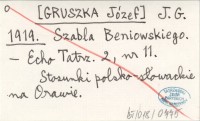 [GRUSZKA Józef] J. G.
1919. Szabla Beniowskiego.
– Echo Tatrz. 2, nr 11.
Stosunki polsko-słowackie
na Orawie.